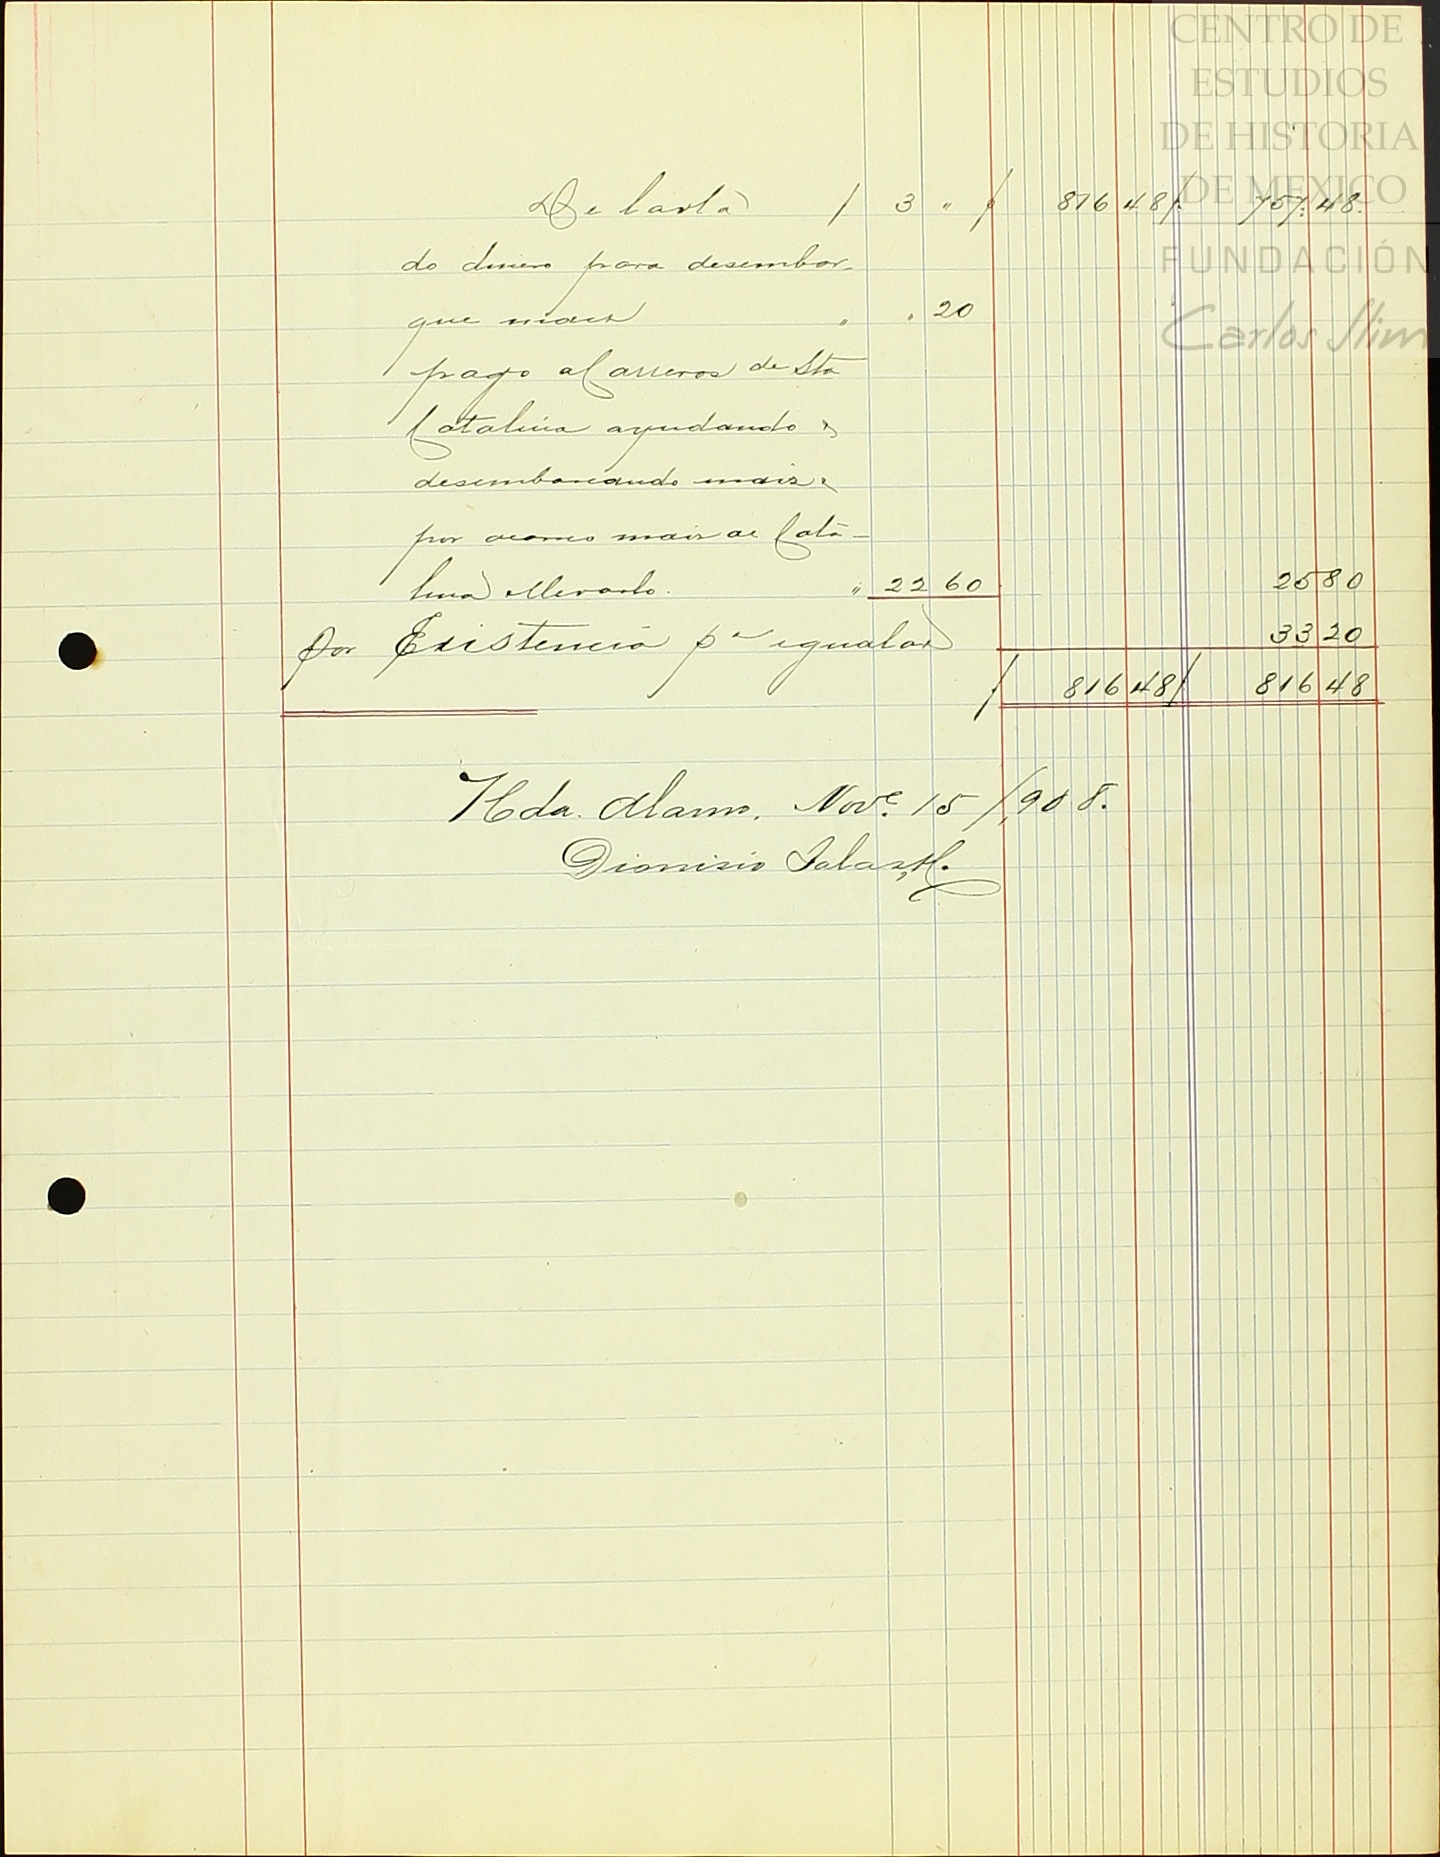 CENTRO DE
ESTUDIOS
DE HISTORIA
DE MEXICO
FUNDACIÓN
Carlos Slim
De 3 " 816 48 757. 48.
do dinero para desembar-
que maiz " . 20
pago a Carreros de Sta
Catalina ayudando
desembarcando maiz
por acarreo maiz de Cata-
lina " 22 60 25 80
Por Existencia pa igualar 33 20
/ 816 48 / 816 48
Hda. Alamo. Nove. 15/908.
Dionisio Salas H.